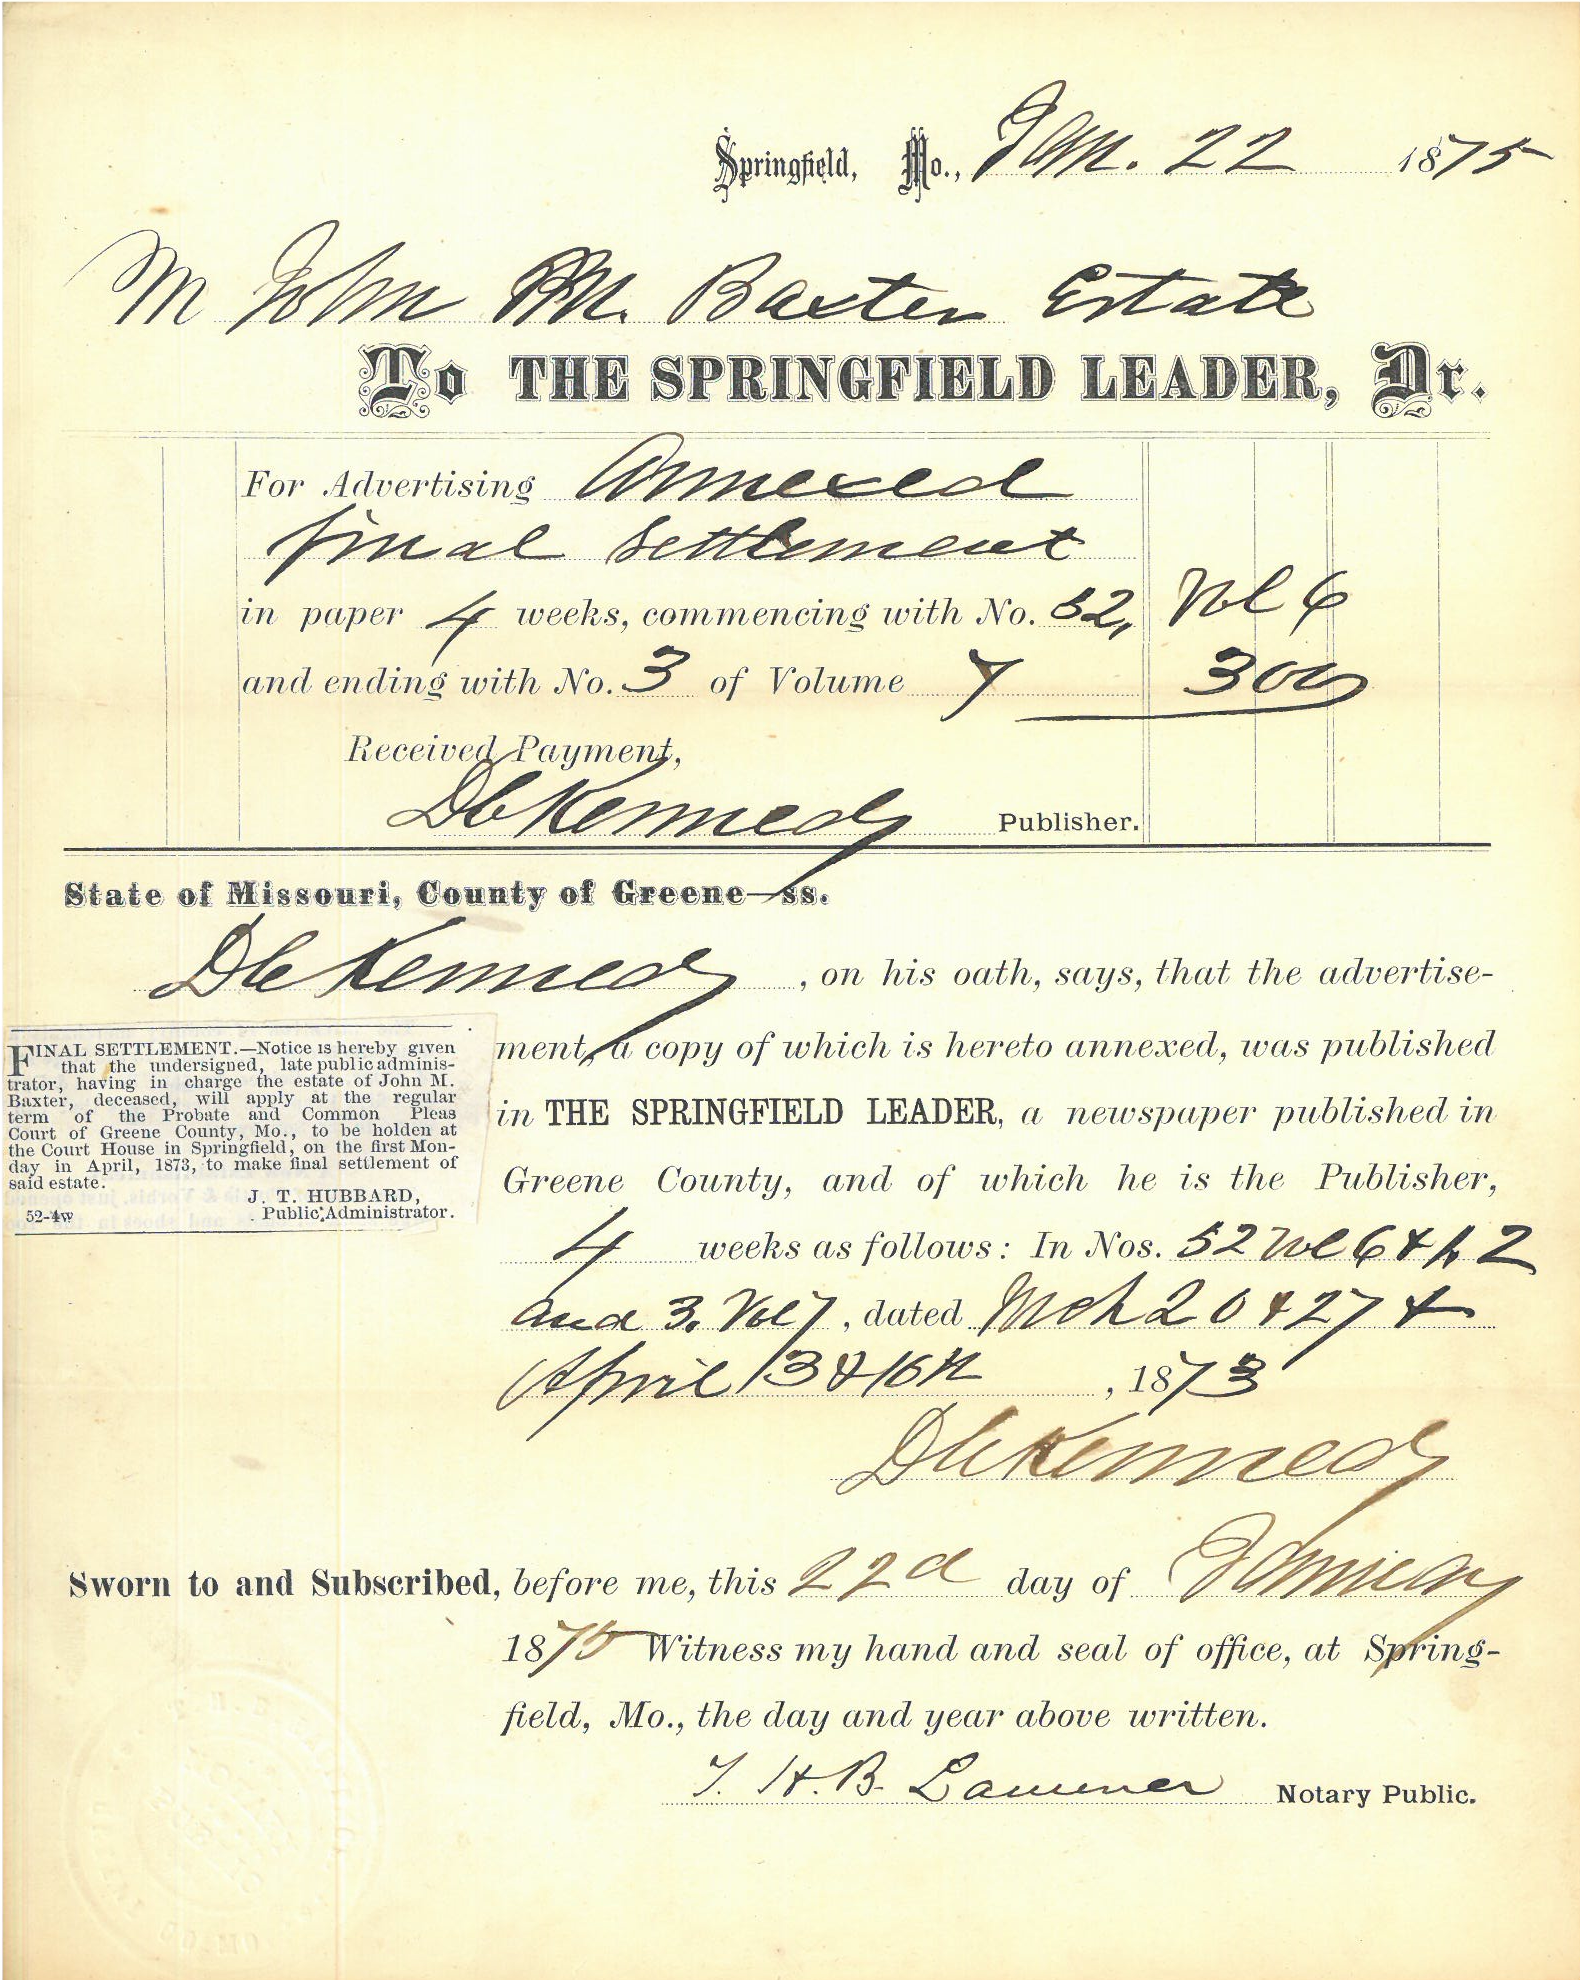 Springfield, Mo., Jan. 22 1875
M John M. Baxter Estate
To THE SPRINGFIELD LEADER, Dr.
For Advertising Annexed
final settlement
in paper 4 weeks, commencing with No. 52, Vol 6
and ending with No. 3 of Volume 7 3 00
Received Payment,
DC Kennedy Publisher.
State of Missouri, County of Greene—ss.
DC Kennedy, on his oath, says, that the advertise-
ment, a copy of which is hereto annexed, was published
in THE SPRINGFIELD LEADER, a newspaper published in
Greene County, and of which he is the Publisher,
4 weeks as follows: In Nos. 52 Vol 6 & 1, 2
and 3. Vol 7, dated Mch 20 & 27 &
April 3 & 10th, 1873
DC Kennedy
FINAL SETTLEMENT.—Notice is hereby given
that the undersigned, late public adminis-
trator, having in charge the estate of John M.
Baxter, deceased, will apply at the regular
term of the Probate and Common Pleas
Court of Greene County, Mo., to be holden at
the Court House in Springfield, on the first Mon-
day in April, 1873, to make final settlement of
said estate.
J. T. HUBBARD,
52-4w Public Administrator.
Sworn to and Subscribed, before me, this 22d day of January
1875 Witness my hand and seal of office, at Spring-
field, Mo., the day and year above written.
T. H. B. Notary Public.